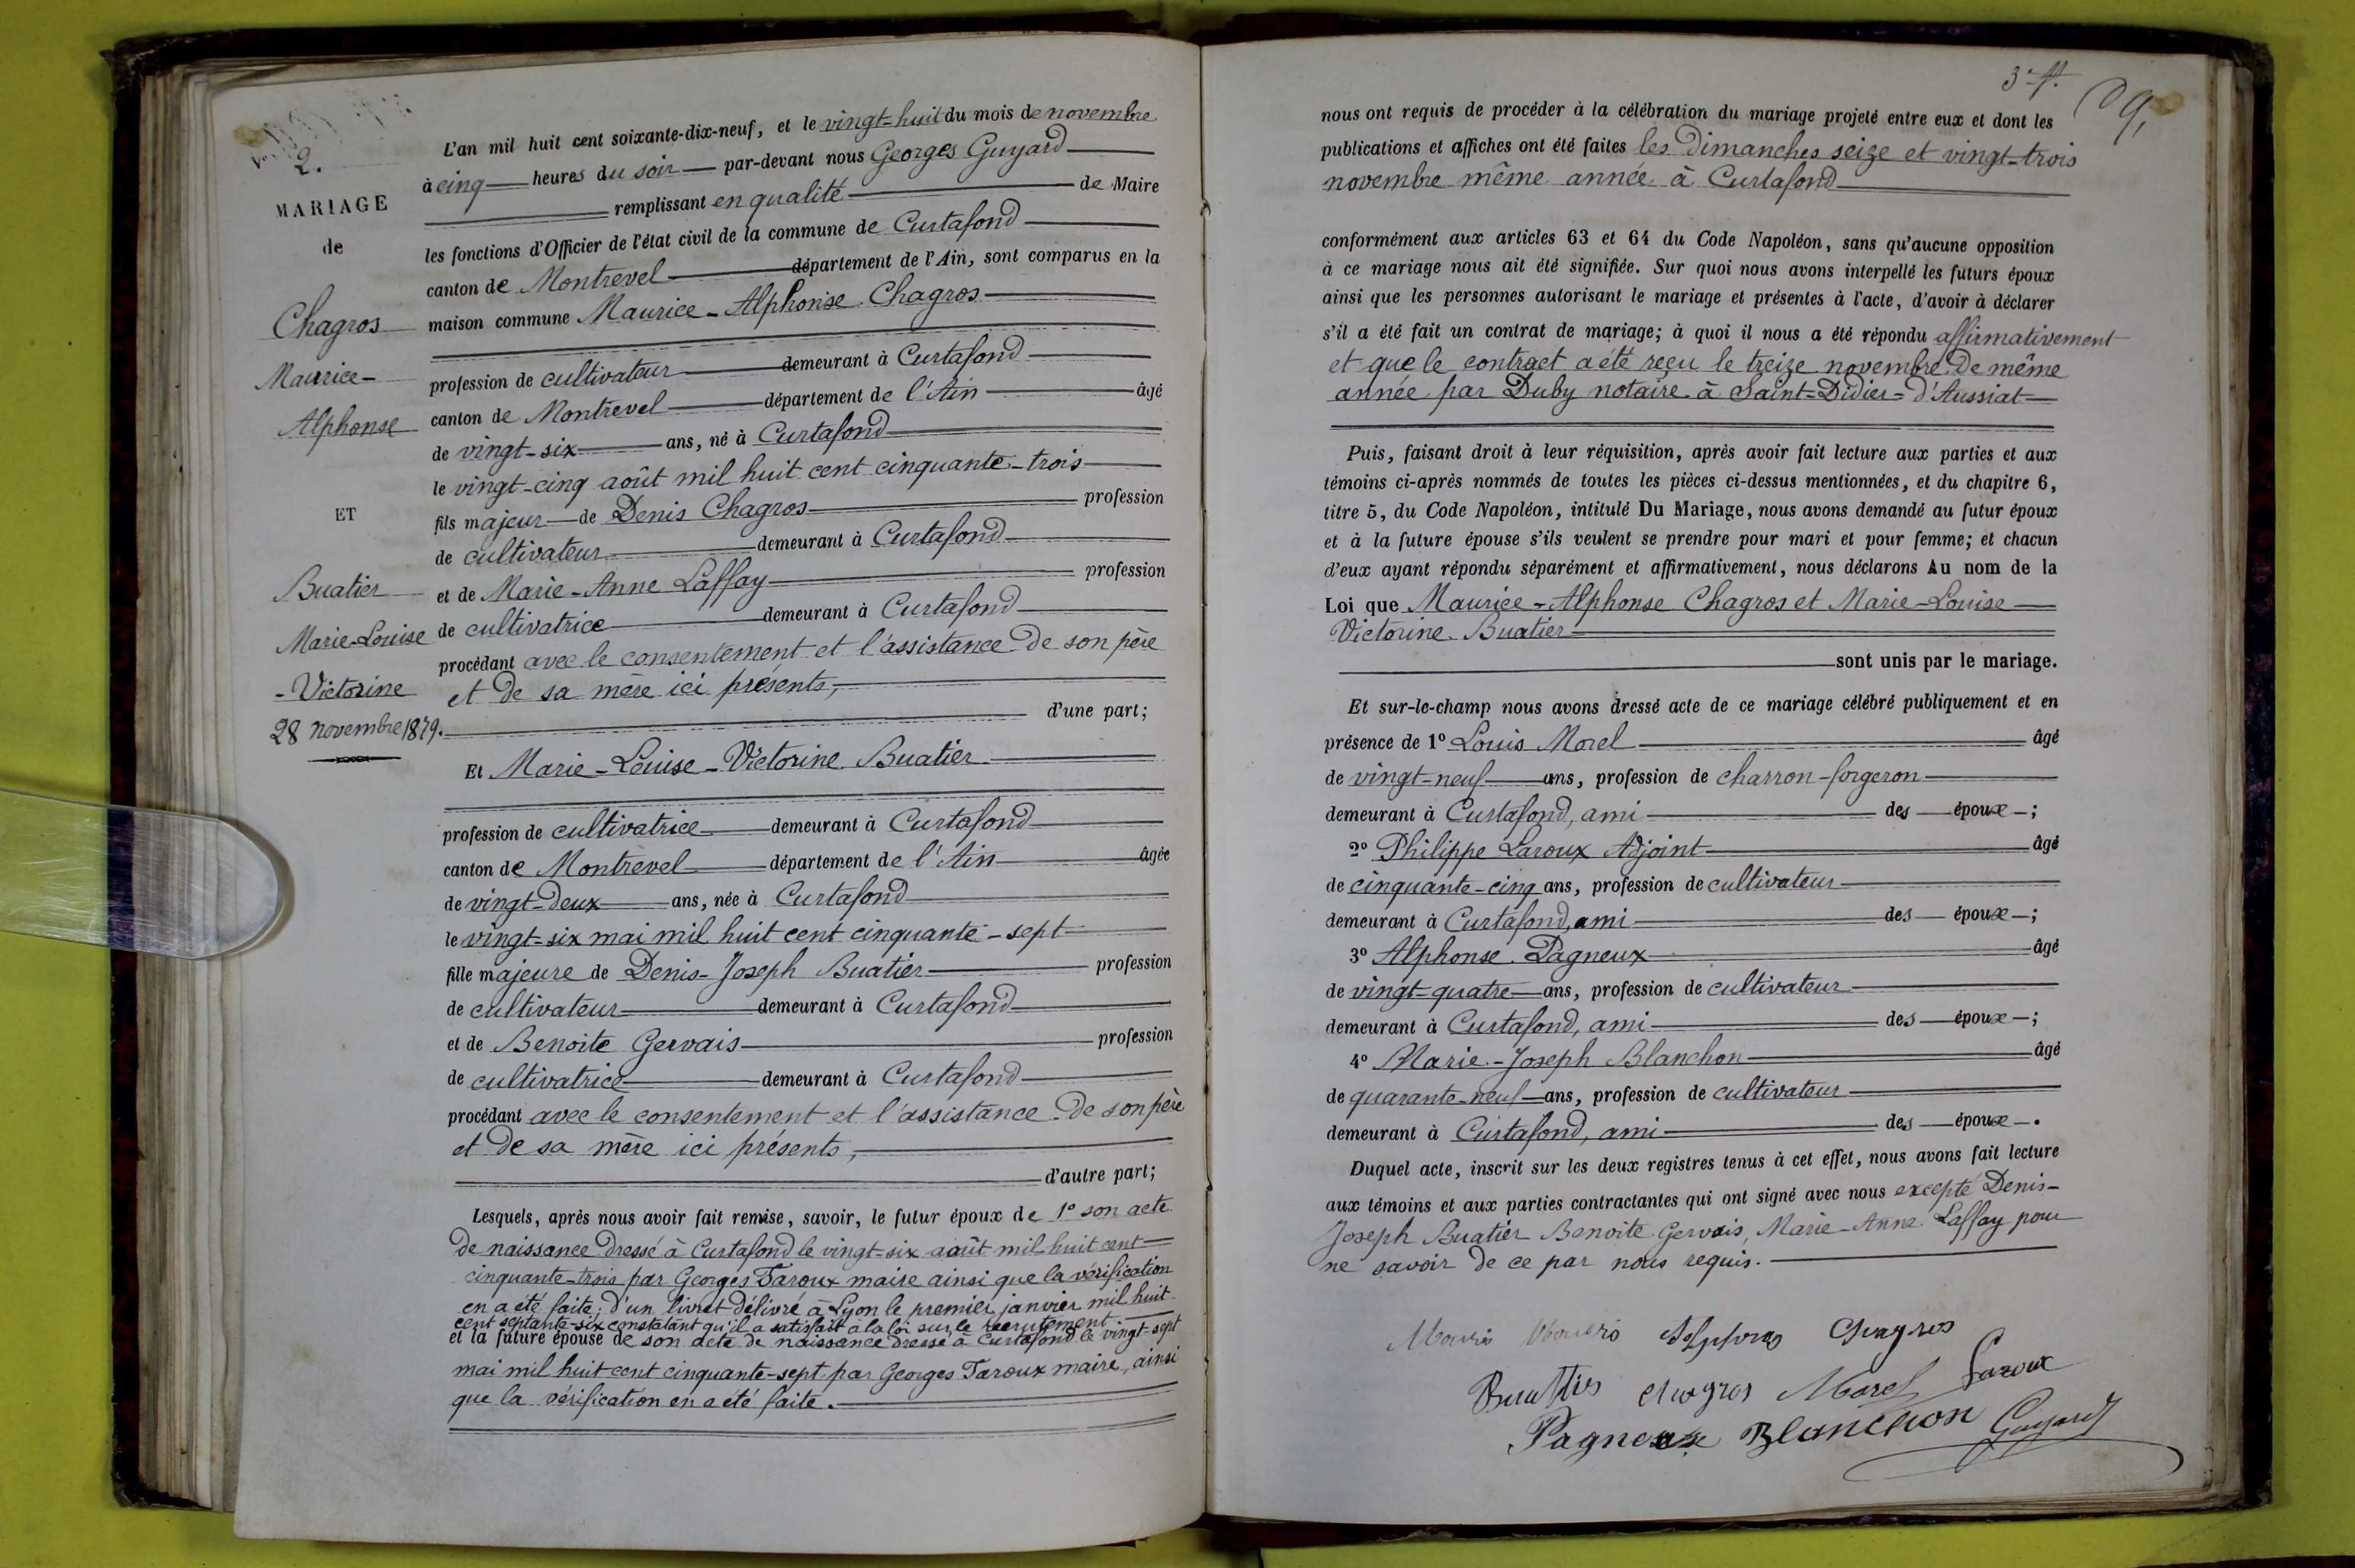 2.
MARIAGE
de
Chagros
Maurice-
Alphonse
ET
Buatier
Marie-Louise
-Victorine
28 novembre 1879.
L'an mil huit cent soixante-dix-neuf, et le vingt-huit du mois de novembre
à cinq heures du soir par-devant nous Georges Guyard
remplissant en qualité de Maire
les fonctions d'Officier de l'état civil de la commune de Curtafond
canton de Montrevel département de l'Ain, sont comparus en la
maison commune Maurice-Alphonse Chagros
profession de cultivateur demeurant à Curtafond
canton de Montrevel département de l'Ain âgé
de vingt-six ans, né à Curtafond
le vingt-cinq août mil huit cent cinquante-trois
fils majeur de Denis Chagros profession
de cultivateur demeurant à Curtafond
et de Marie-Anne Laffay profession
de cultivatrice demeurant à Curtafond
procédant avec le consentement et l'assistance de son père
et de sa mère ici présents,
d'une part;
Et Marie-Louise-Victorine Buatier
profession de cultivatrice demeurant à Curtafond
canton de Montrevel département de l'Ain âgée
de vingt-deux ans, née à Curtafond
le vingt-six mai mil huit cent cinquante-sept
fille majeure de Denis-Joseph Buatier profession
de cultivateur demeurant à Curtafond
et de Benoite Gervais profession
de cultivatrice demeurant à Curtafond
procédant avec le consentement et l'assistance de son père
et de sa mère ici présents,
d'autre part;
Lesquels, après nous avoir fait remise, savoir, le futur époux de 1° son acte
de naissance dressé à Curtafond le vingt-six août mil huit cent
cinquante-trois par Georges Taroux maire ainsi que la vérification
en a été faite; d'un livret délivré à Lyon le premier janvier mil huit
cent septante-six constatant qu'il a satisfait à la loi sur le recrutement
et la future épouse de son acte de naissance dressé à Curtafond le vingt-sept
mai mil huit cent cinquante-sept par Georges Taroux maire, ainsi
que la vérification en a été faite.
nous ont requis de procéder à la célébration du mariage projeté entre eux et dont les
publications et affiches ont été faites les dimanches seize et vingt-trois
novembre même année à Curtafond
conformément aux articles 63 et 64 du Code Napoléon, sans qu'aucune opposition
à ce mariage nous ait été signifiée. Sur quoi nous avons interpellé les futurs époux
ainsi que les personnes autorisant le mariage et présentes à l'acte, d'avoir à déclarer
s'il a été fait un contrat de mariage; à quoi il nous a été répondu affirmativement
et que le contract a été reçu le treize novembre de même
année par Duby notaire à Saint-Didier-d'Aussiat
Puis, faisant droit à leur réquisition, après avoir fait lecture aux parties et aux
témoins ci-après nommés de toutes les pièces ci-dessus mentionnées, et du chapitre 6,
titre 5, du Code Napoléon, intitulé Du Mariage, nous avons demandé au futur époux
et à la future épouse s'ils veulent se prendre pour mari et pour femme; et chacun
d'eux ayant répondu séparément et affirmativement, nous déclarons Au nom de la
Loi que Maurice-Alphonse Chagros et Marie-Louise
Victorine Buatier
sont unis par le mariage.
Et sur-le-champ nous avons dressé acte de ce mariage célébré publiquement et en
présence de 1° Louis Morel âgé
de vingt-neuf ans, profession de charron-forgeron
demeurant à Curtafond, ami des époux;
2° Philippe Laroux Adjoint âgé
de cinquante-cinq ans, profession de cultivateur
demeurant à Curtafond, ami des époux;
3° Alphonse Pagneux âgé
de vingt-quatre ans, profession de cultivateur
demeurant à Curtafond, ami des époux;
4° Marie-Joseph Blanchon âgé
de quarante-neuf ans, profession de cultivateur
demeurant à Curtafond, ami des époux.
Duquel acte, inscrit sur les deux registres tenus à cet effet, nous avons fait lecture
aux témoins et aux parties contractantes qui ont signé avec nous excepté Denis-
Joseph Buatier Benoite Gervais, Marie-Anne Laffay pour
ne savoir de ce par nous requis.
Chagros
chagros Morel Laroux
Pagneux Blanchon Guyard